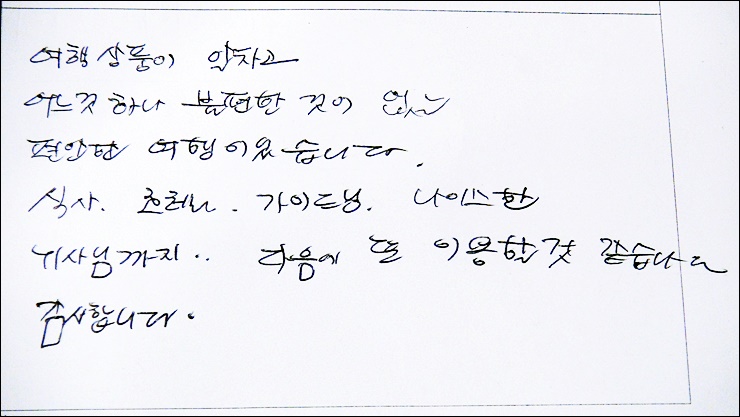 여행상품이 알차고
어느것 하나 불편한 것이 없는
편안한 여행이었습니다.
식사. 호텔. 가이드님. 나이스한
기사님까지.. 다음에 또 이용할것 같습니다
감사합니다.